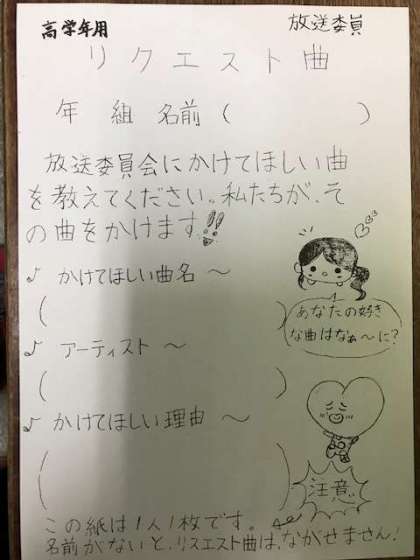 高学年用
放送委員
リクエスト曲
年 組 名前 ( )
放送委員会にかけてほしい曲
を教えてください。私たちが、そ
の曲をかけます!!
♪ かけてほしい曲名 〜
( )
あなたの好き
な曲はなぁ〜に?
♪ アーティスト 〜
( )
♪ かけてほしい理由 〜
( )
注意
この紙は1人1枚です。
名前がないと、リスエスト曲は、ながせません!